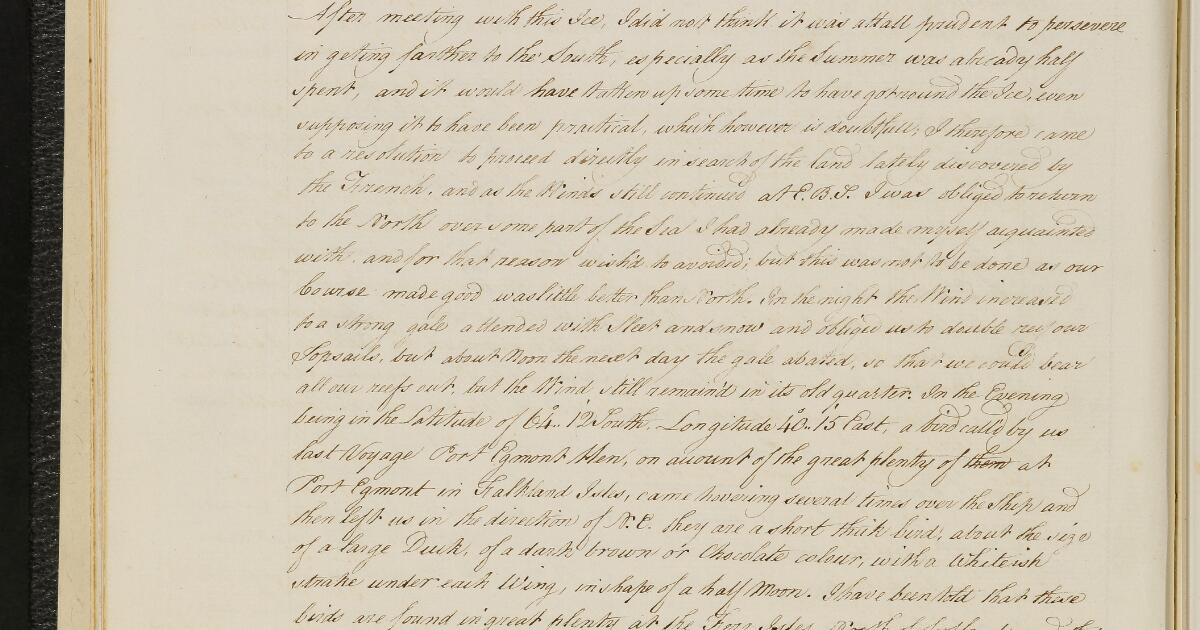 After meeting with this Ice, I did not think it was attall prudent to persevere
in geting farther to the South, especially as the Summer was already half
spent, and it would have taken up some time to have got round the Ice, even
supposing it to have been practical, which however is doubtfull; I therefore came
to a resolution to proceed directly in search of the land lately discovered by
the French. and as the Winds still continued at E.B.S. I was obliged to return
to the North over some part of the Sea I had already made myself acquainted
with, and for that reason wish'd to avoided; but this was not to be done as our
Course made good was little better than North. In the night the Wind increased
to a strong gale attended with Sleet and snow and obliged us to double reef our
Topsails, but about Noon the next day the gale abated, so that we could bear
all our reefs out, but the Wind still remain'd in its old quarter. In the Evening
being in the Latitude of 64°.. 12' South. Longitude 40°. 15' East, a bird call'd by us
last Voyage Port Egmont Hen, on account of the great plenty of them at
Port Egmont in Falkland Isles, came hovering several times over the Ship and
then left us in the direction of N.E. they are a short thick bird, about the size
of a large Duck, of a dark brown or Chocolate colour, with a Whiteish
strake under each Wing, in shape of a half Moon. I have been told that these
birds are found in great plenty at the Fero Isles,